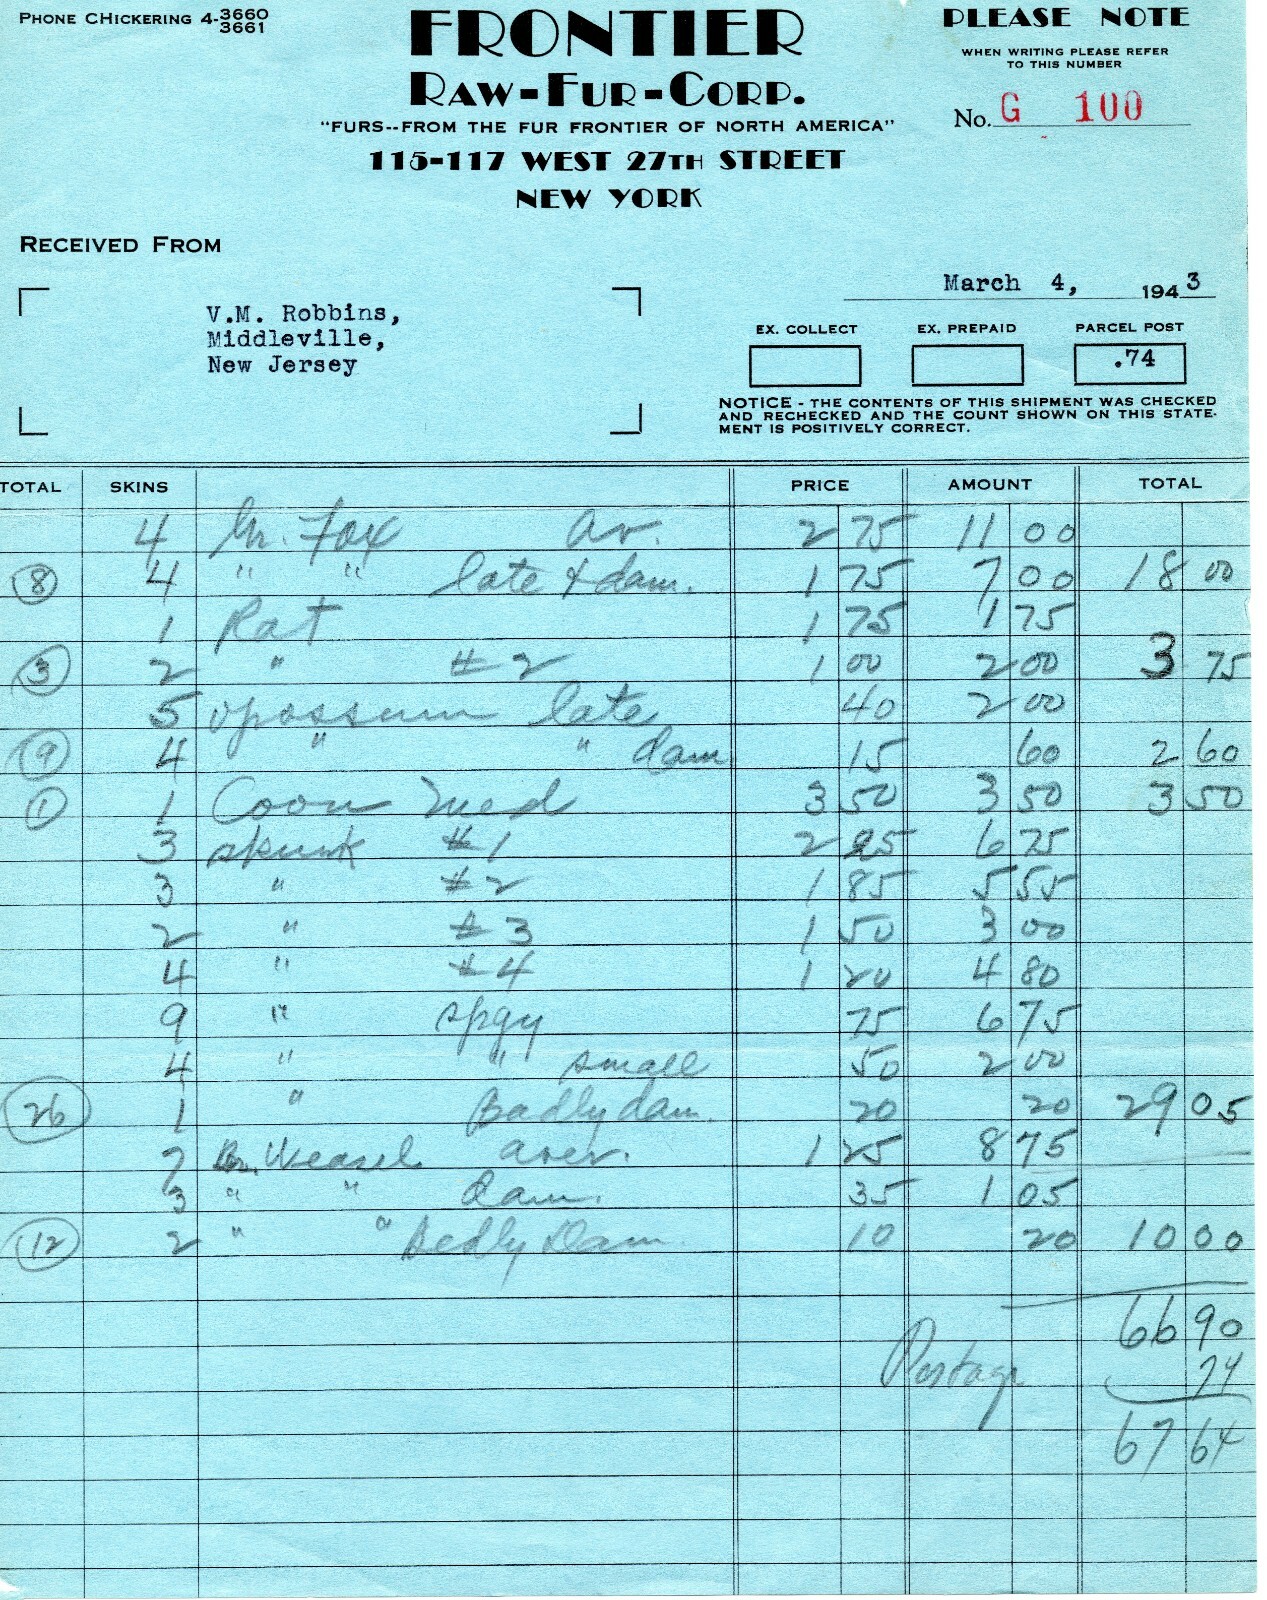 PHONE CHICKERING 4-3660
3661
FRONTIER
RAW-FUR-CORP.
"FURS--FROM THE FUR FRONTIER OF NORTH AMERICA"
115-117 WEST 27TH STREET
NEW YORK
PLEASE NOTE
WHEN WRITING PLEASE REFER
TO THIS NUMBER
No. G 100
RECEIVED FROM
V.M. Robbins,
Middleville,
New Jersey
March 4, 1943
EX. COLLECT EX. PREPAID PARCEL POST
.74
NOTICE - THE CONTENTS OF THIS SHIPMENT WAS CHECKED
AND RECHECKED AND THE COUNT SHOWN ON THIS STATE-
MENT IS POSITIVELY CORRECT.
TOTAL SKINS PRICE AMOUNT TOTAL
4 Gr. Fox av. 2 75 11 00
8 4 " " late & dam. 1 75 7 00 18 00
1 Rat 1 75 1 75
3 2 " #2 1 00 2 00 3 75
5 opossum late 40 2 00
9 4 " " dam 15 60 2 60
1 1 Coon Med 3 50 3 50 3 50
3 skunk #1 2 25 6 75
3 " #2 1 85 5 55
2 " #3 1 50 3 00
4 " #4 1 20 4 80
9 " spgy 75 6 75
4 " " small 50 2 00
26 1 " Badly dam. 20 20 29 05
7 Br. Weasel aver. 1 25 8 75
3 " " Dam. 35 1 05
12 2 " " Bedly Dam. 10 20 10 00
66 90
Postage 74
67 64